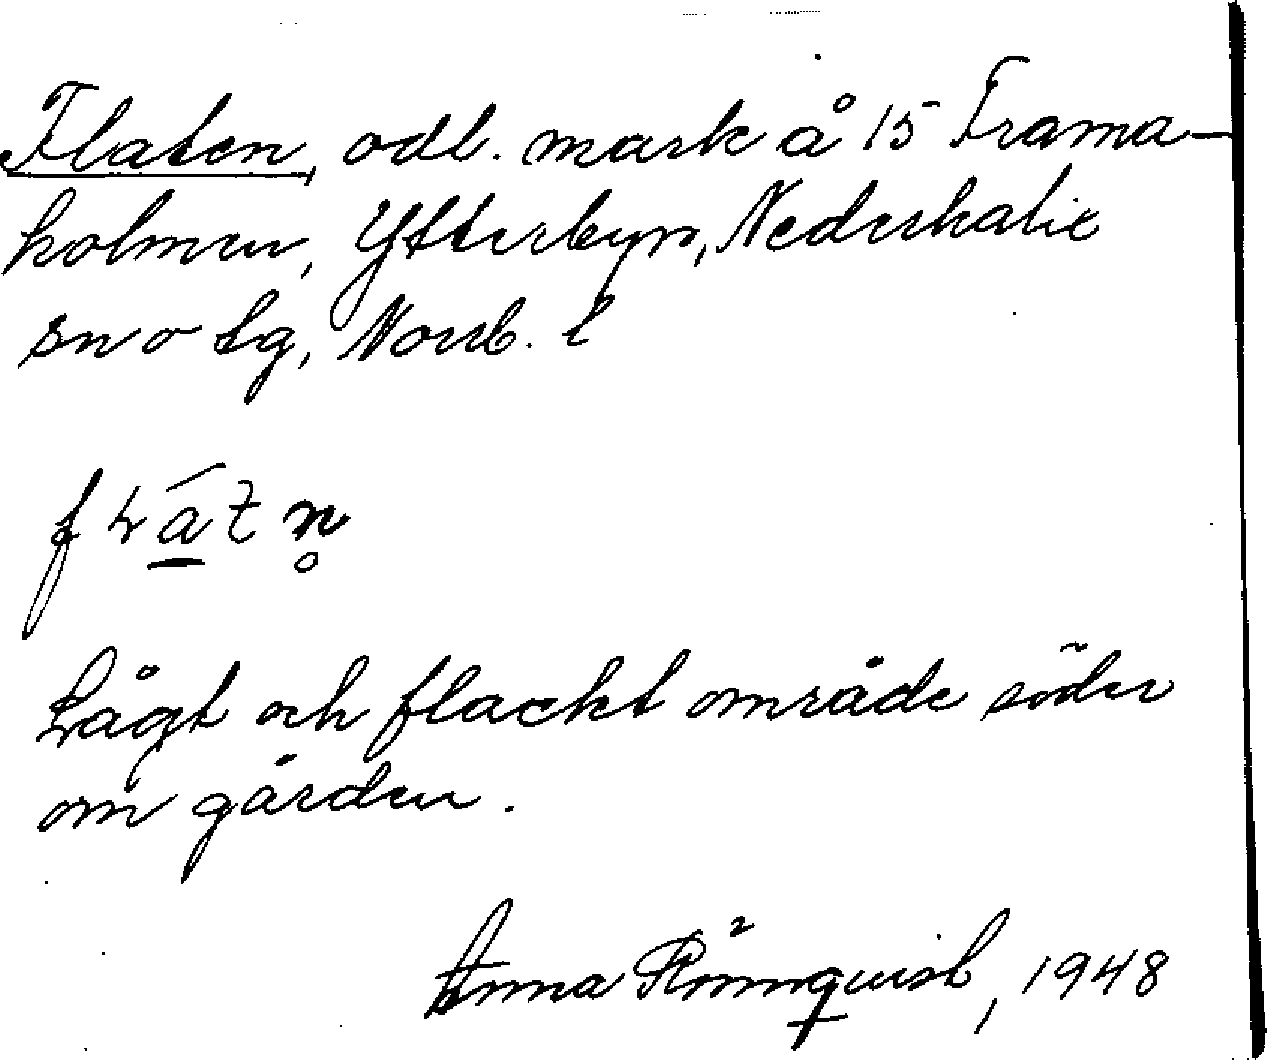 Flaten, odl. mark å 15 Frama-
holmen, Ytterbyn, Nederkalix
sn o tg, Norrb. l
Lågt och flackt område söder
om gården.
Anna Rönnquist, 1948